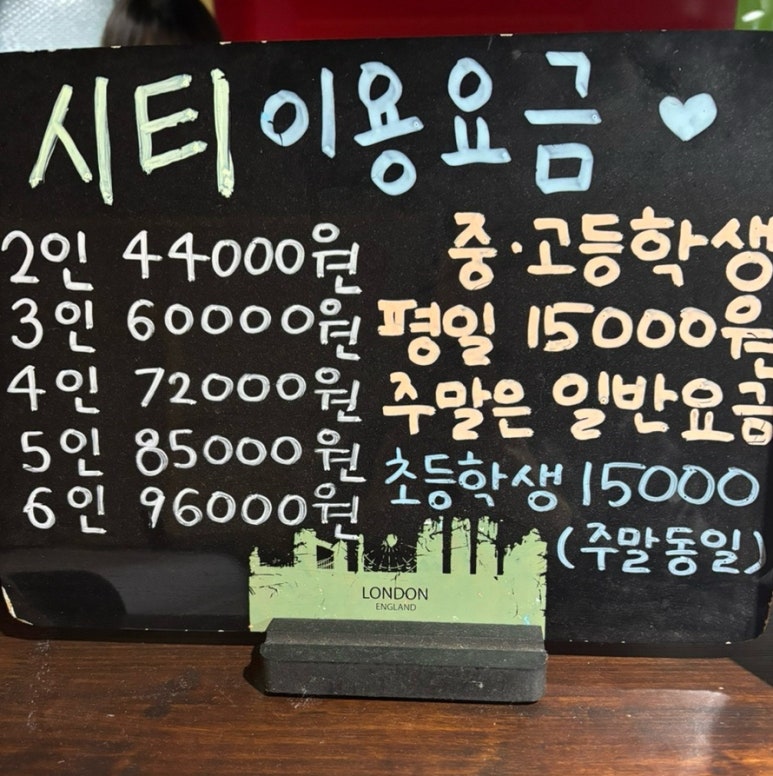 시티 이용요금
2인 44000원
3인 60000원
4인 72000원
5인 85000원
6인 96000원
중·고등학생
평일 15000원
주말은 일반요금
초등학생 15000
(주말동일)
LONDON
ENGLAND